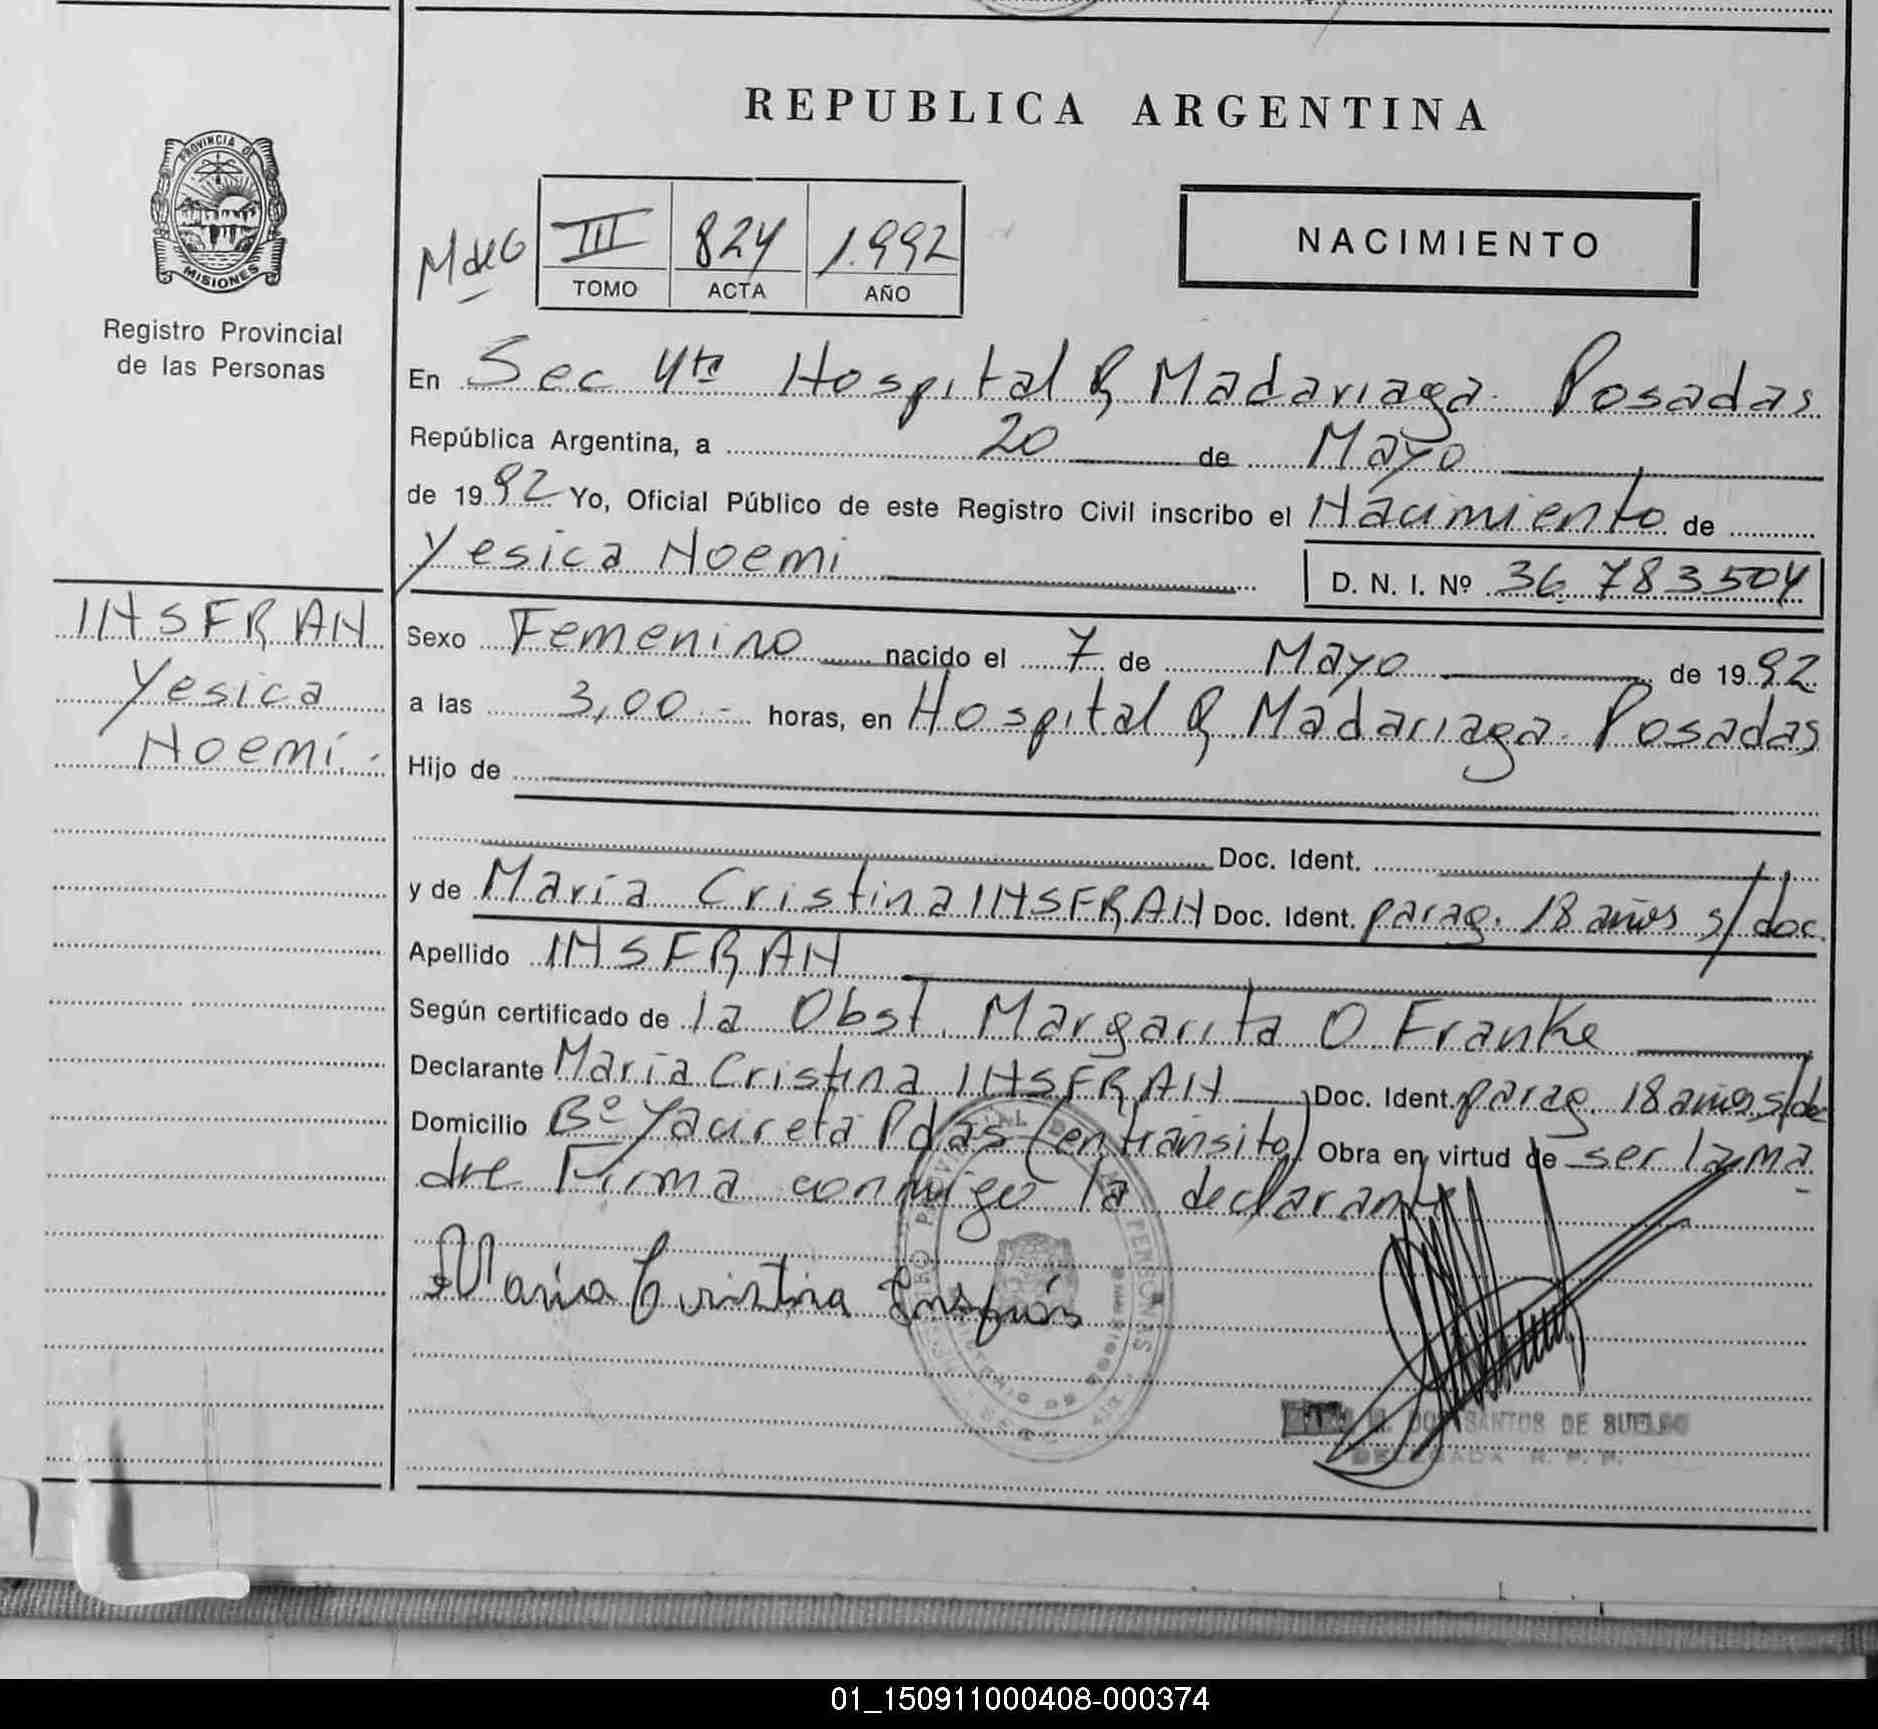 REPUBLICA ARGENTINA
PROVINCIA DE
MISIONES
Registro Provincial
de las Personas
III 824 1.992
TOMO ACTA AÑO
NACIMIENTO
En Sec 4ta Hospital R Madariaga. Posadas
República Argentina, a 20 de Mayo
de 1992 Yo, Oficial Público de este Registro Civil inscribo el Nacimiento de
Yesica Noemi D. N. I. Nº 36.783504
INSFRAN
Yesica
Noemí.-
Sexo Femenino nacido el 7 de Mayo de 1992
a las 3,00.- horas, en Hospital R Madariaga. Posadas
Hijo de
Doc. Ident.
y de María Cristina INSFRAN Doc. Ident. parag. 18 años s/doc.
Apellido INSFRAN
Según certificado de la Obst. Margarita O Franke
Declarante María Cristina INSFRAN Doc. Ident. parag. 18 años s/dc
Domicilio Bº Yacireta Pdas (en transito) Obra en virtud de ser la ma
dre Firma conmigo la declarante
Maria Cristina Insfrán
DOS SANTOS DE
DELEGADA R. P. P.
01_150911000408-000374